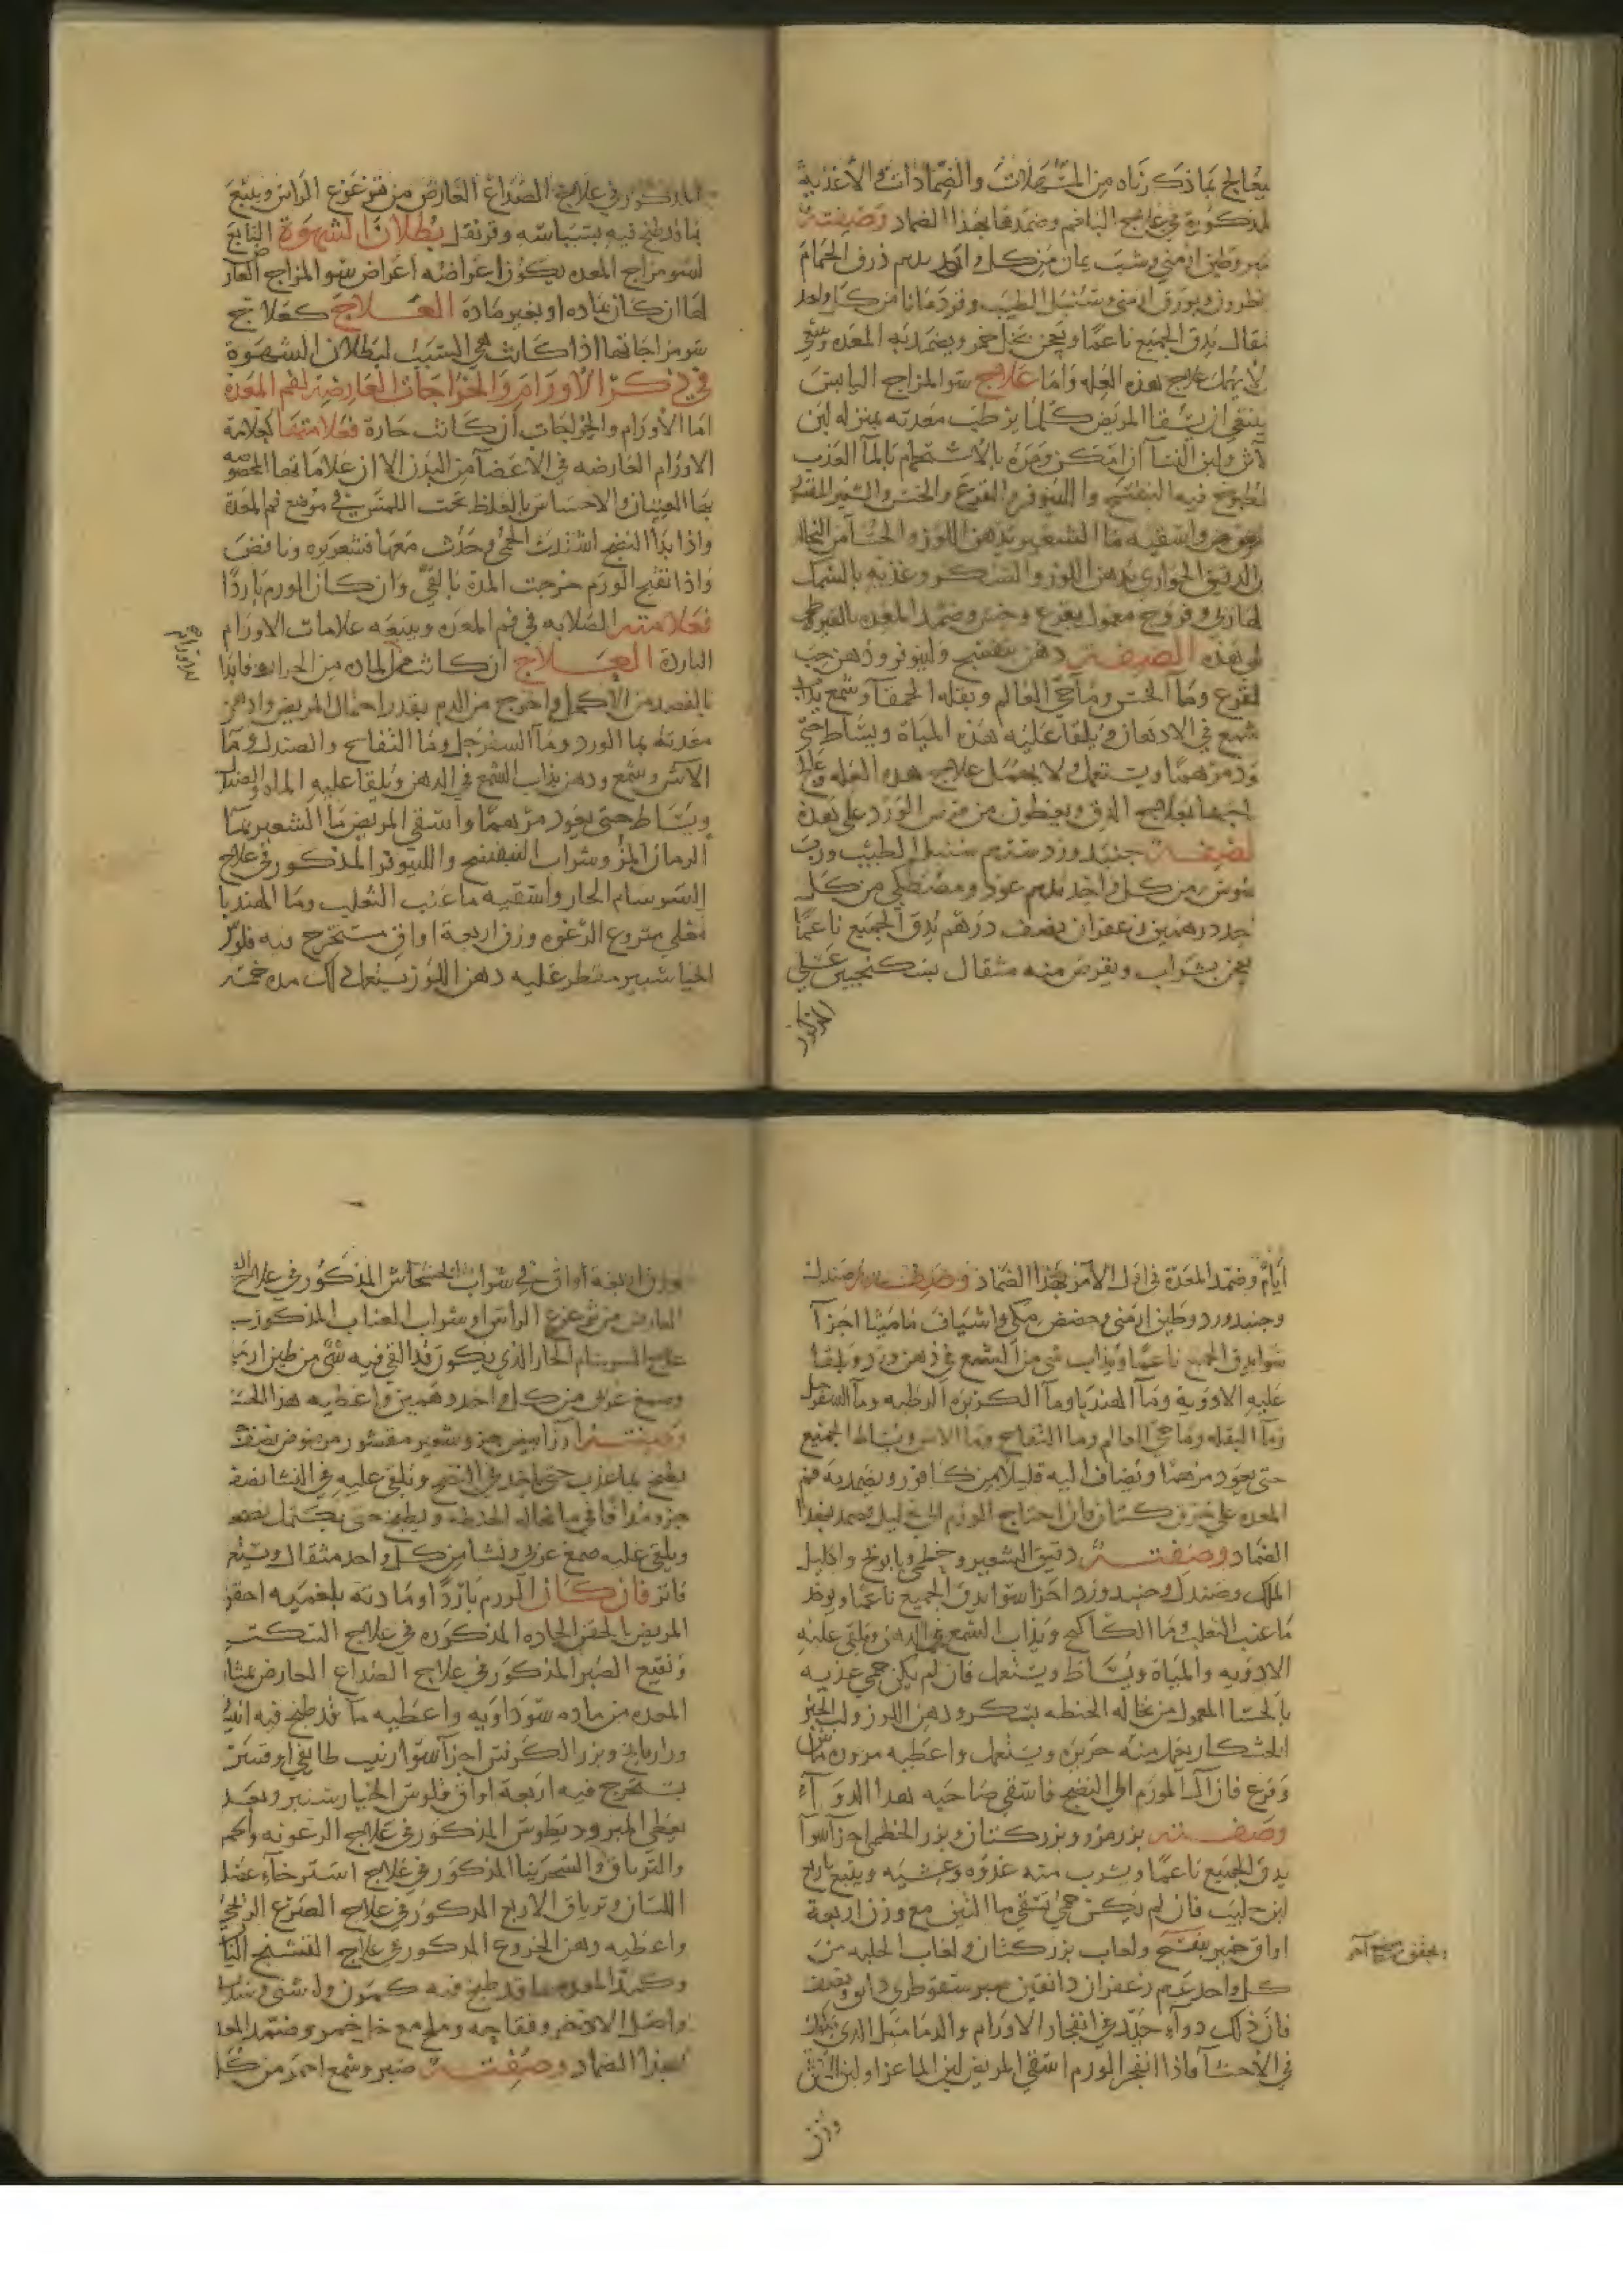 يعالج بما ذكرناه من المسهلات والضمادات والأغذية
المذكورة في علاج البلغم وضمدها بهذا الضماد وصفته
وطين ارمني وشب يمان من كل واحد درهم ذرق الحمام
نطرون وبورق ارمني وسنبل الطيب وقردمانا من كل واحد
مثقال يدق الجميع ناعما ويعجن بخل خمر ويضمد به المعده
لا يهمل علاج هذه العله واما علاج سو المزاج اليابس
ينبغي ان يسقا المريض كلما يرطب معدته بمنزله لبن
ولبن النسا ان امكن ومره بالاستحمام بالما العذب
المطبوخ فيه البنفسج واللينوفر والقرع والخس والشعير المقشر
واسقيه ما الشعير بدهن اللوز والحسا من النخاله
والدقيق الحواري بدهن اللوز والسكر وغذيه بالسمك
الهازبى وفروج معمول بقرع وخس وضمد المعده بالقيروطي
بهذه الصفه دهن بنفسج ولينوفر ودهن حب
القرع وما الخس وما حي العالم وبقله الحمقا وشمع يذاب
الشمع في الادهان ويلقا عليه هذه المياة ويساط حتى
يعود مرهما ويستعمل ولا يهمل علاج هذه العله
بعلاج الدق ويعطون من قرص الورد على هذه
الصفه جنبد ورد سنبل الطيب ورب
سوس من كل واحد درهم عود ومصطكي من كل
واحد درهمين زعفران نصف درهم يدق الجميع ناعما
يعجن بشراب ويقرص منه مثقال بسكنجبين عسلي
المذكور
المذكور في علاج الصداع العارض من تزعزع الراس ويتبع
بما قد طبخ فيه بسباسه وقرنفل بطلان الشهوة التابع
لسو مزاج المعده يكون اعراضه اعراض سو المزاج العارض
لها ان كان بماده او بغير مادة العلاج كعلاج
سو مزاجاتها اذا كانت هي السبب لبطلان الشهوة
في ذكر الاورام والخراجات العارضة لفم المعدة
اما الاورام والخراجات ان كانت حارة فعلامتها كعلامة
الاورام العارضه في الاعضا من البدن الا ان علاماتها المخصوصه
بها الغثيان والاحساس بالغلظ تحت اللمس في موضع فم المعدة
واذا بدا النضج اشتدت الحمى وحدث معها قشعريره ونافض
واذا نضج الورم خرجت المدة بالقي وان كان الورم باردا
فعلامته الصلابه في فم المعده ويتبعه علامات الاورام
الباردة العلاج ان كانت المادة من الحراره فابدا
بالفصد من الاكحل واخرج من الدم بقدر احتمال المريض وادهن
معدته بما الورد وما السفرجل وما التفاح والصندل وما
الاس وشمع ودهن يذاب الشمع في الدهن ويلقا عليه الماه والصندل
ويساط حتى يعود مرهما واسقي المريض ما الشعير بما
الرمان المز وشراب البنفسج واللينوفر المذكور في علاج
السرسام الحار واسقيه ما عنب الثعلب وما الهندبا
مغلي منزوع الرغوه وزن اربعة اواق مستخرج فيه فلوس
الخيار شنبر مقطر عليه دهن اللوز يستعمل ذلك مده خمسه
ايام وضمد المعدة في اول الامر بهذا الضماد وصفته صندل
وجنبد ورد وطين ارمني وحضض مكي واشياف ماميثا اجزا
سوا يدق الجميع ناعما ويذاب شي من الشمع في دهن ورد ويلقا
عليه الادوية وما الهندبا وما الكزبره الرطبه وما السفرجل
وما البقله وما حي العالم وما التفاح وما الاس ويساط الجميع
حتى يعود مرهما ويضاف اليه قليلا من كافور ويضمد به فم
المعده على خرق كتان فان احتاج الورم الى تحليل يضمد بهذا
الضماد وصفته دقيق الشعير وخطمي وبابونج واكليل
الملك وصندل وجنبد ورد اجزا سوا يدق الجميع ناعما ويوخذ
ما عنب الثعلب وما الكاكنج ويذاب الشمع في الدهن ويلقى عليه
الادويه والمياة ويساط ويستعمل فان لم يكن حمى غذيه
بالحسا المعمول من نخاله الحنطه بسكر ودهن اللوز ولب الخبز
الخشكار يعمل منه حريره ويستعمل واعطيه مزوره ماش
وقرع فان آل الورم الى النضج فاسقي صاحبه هذا الدوآء
وصفته بزر مرو وبزر كتان وبزر الخطمي اجزا سوا
يدق الجميع ناعما ويشرب منه غدوه وعشيه ويتبع
لبن حليب فان لم يكن حمى تسقي ما التين مع وزن اربعة
اواق خمير بنفسج ولعاب بزر كتان ولعاب الحلبه من
كل واحد درهم زعفران دانقين صبر سقوطري دانق ونصف
فان ذلك دواء جيد في انفجار الاورام والدماميل الذي تكون
في الاحشا فاذا انفجر الورم اسقي المريض لبن الماعز او لبن الاتن
وزن
وزن اربعه اواق في شراب الخشخاش المذكور في علاج
العارض من تزعزع الراس وشراب العناب المذكور في
علاج السرسام الحار الذي يكون قد القي فيه شي من طين ارمني
وصمغ عربي من كل واحد درهمين واعطيه هذا الحسا
وصفته ارز ابيض جزو شعير مقشور مرضوض نصف
يطبخ بما عذب حتى ياخذ في النضج ويلقى عليه في النشا نصف
جزو مدافا في ما نخاله الحنطه ويطبخ حتى يكتمل نضجه
ويلقى عليه صمغ عربي ونشا من كل واحد مثقال ويستعمل
فاتر فان كان الورم باردا او مادته بلغميه احقن
المريض بالحقن الحاده المذكوره في علاج السكته
ونقيع الصبر المذكور في علاج الصداع العارض بمشاركة
المعده من ماده سوداويه واعطيه ما قد طبخ فيه انيسون
ورازيانج وبزر الكرفس اجزا سوا زبيب طايفي اوقيتين
يستخرج فيه اربعة اواق فلوس الخيارشنبر وبعد
يعطى المثروديطوس المذكور في علاج الرعونه والحمق
والترياق والشجرينا المذكور في علاج استرخاء عضل
اللسان وترياق الاربع المذكور في علاج الصرع البلغمي
واعطيه دهن الخروع المذكور في علاج التشنج
وكمد المعده بما قد طبخ فيه كمون واشنه وسذاب
واصل الاذخر وفقاحه وملح مع خل خمر وضمد المعده
بهذا الضماد وصفته صبر وشمع احمر من كل